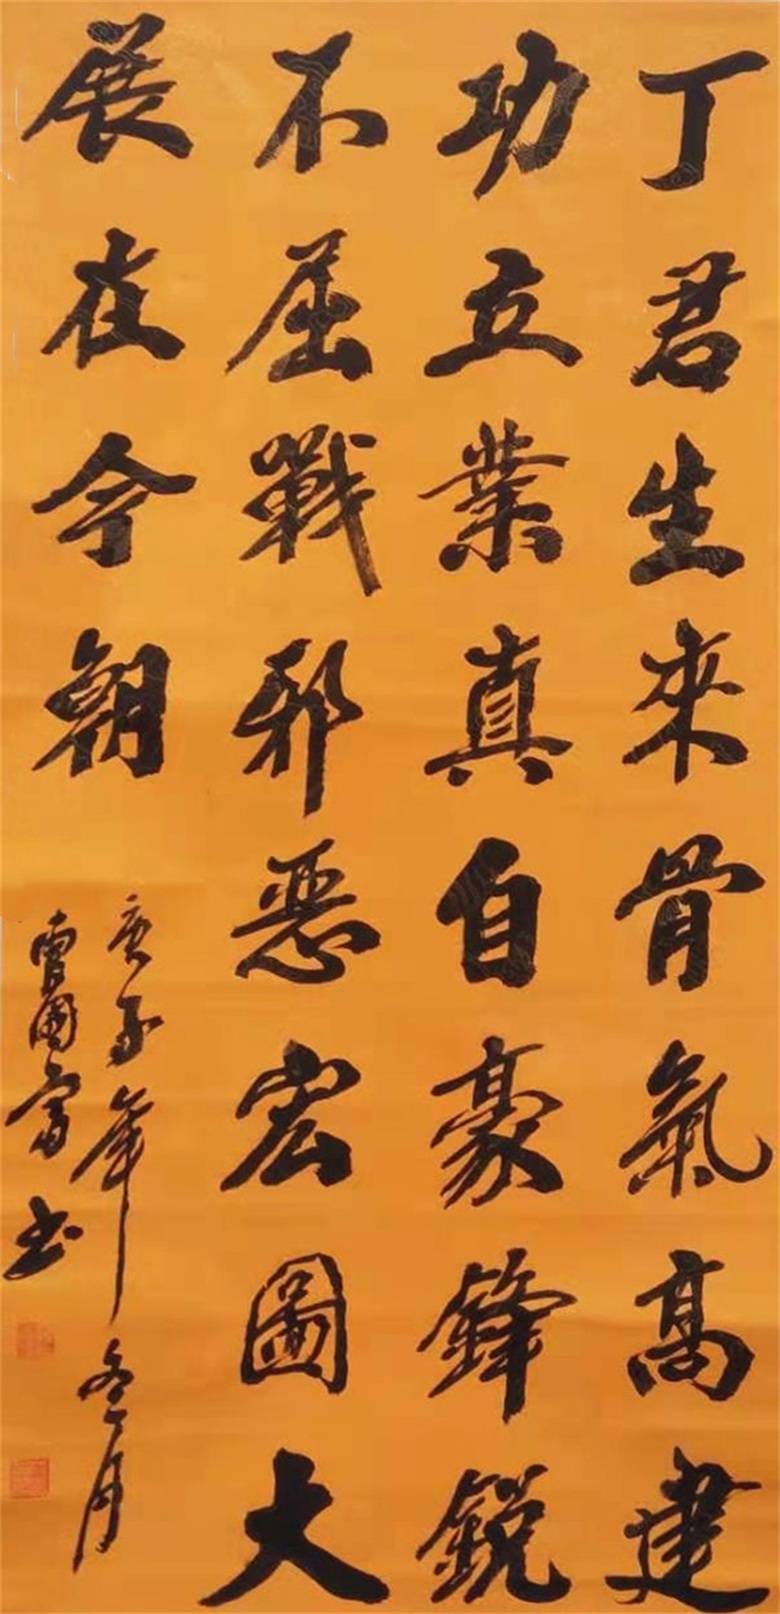 丁君生來骨氣高建
功立業真自豪鋒銳
不屈戰邪惡宏圖大
展在今朝
庚子年冬月
曹國富书